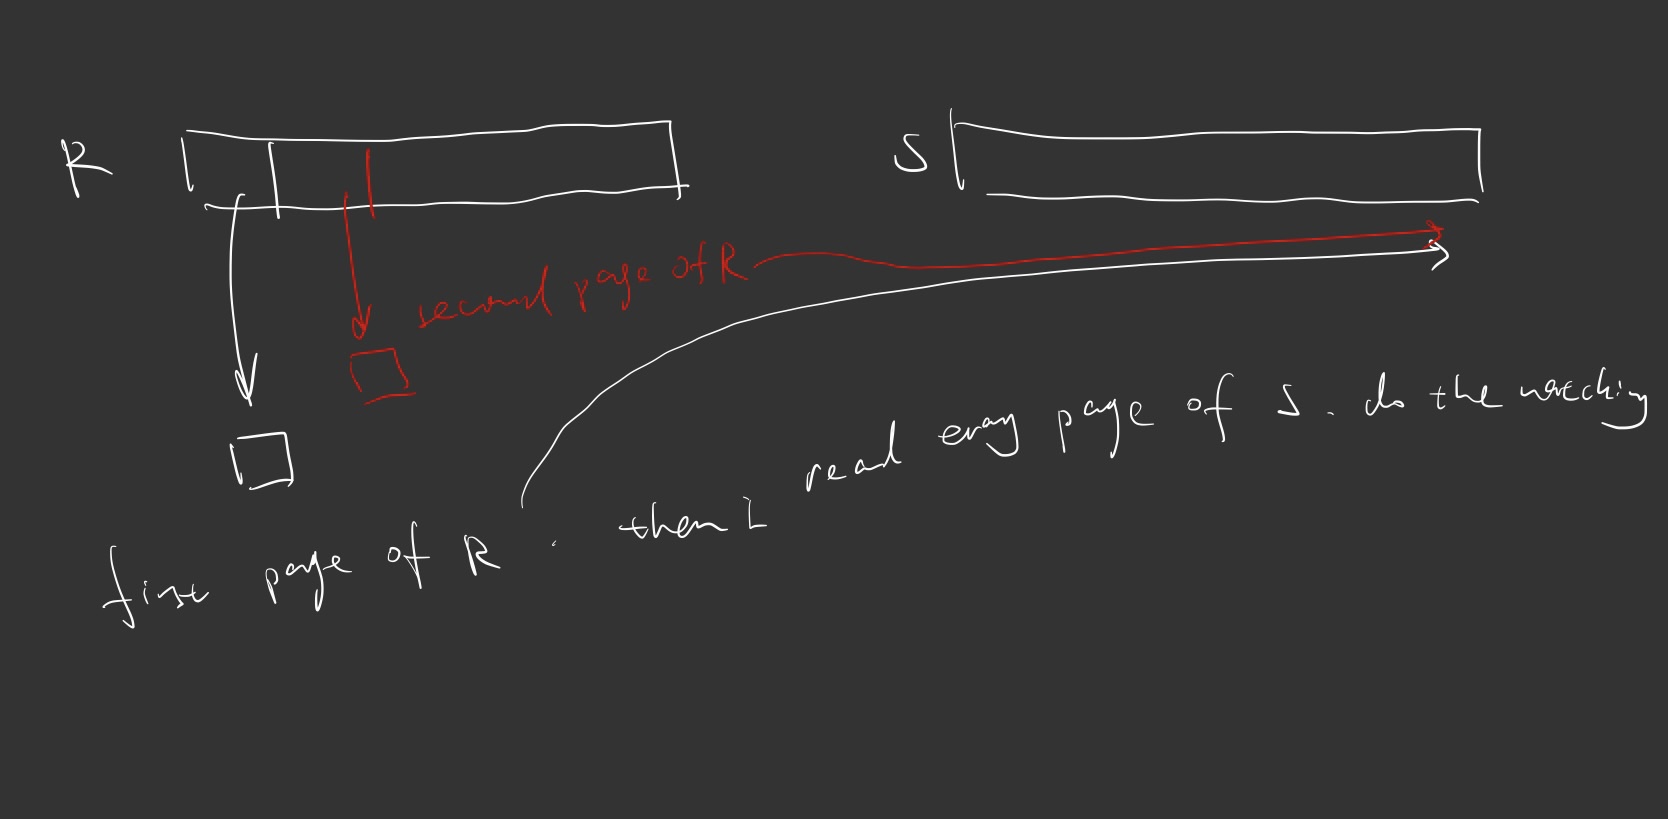 R
S
second page of R
first page of R . then I read every page of S . do the matching